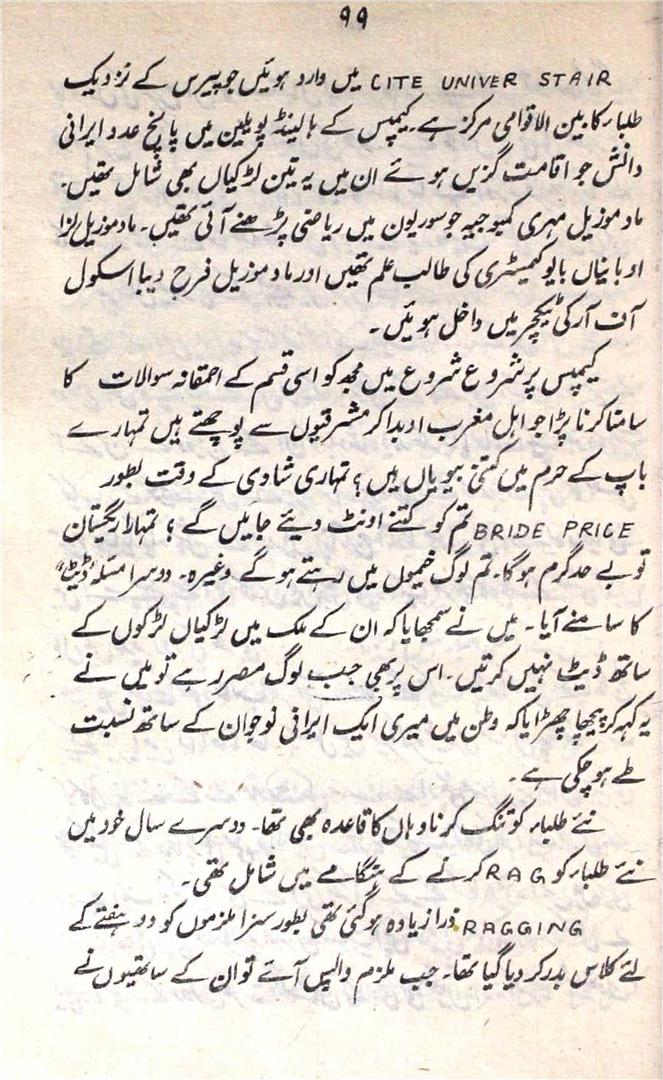 ۹۹
CITE UNIVER STAIR میں وارد ہوئیں جو پیرس کے نزدیک
طلباء کا بین الاقوامی مرکز ہے۔ کیمپس کے ہالینڈ پویلین میں پانچ عدد ایرانی
دانش جو اقامت گزیں ہوئے ان میں یہ تین لڑکیاں بھی شامل تھیں۔
مادموزیل مہری کمبوجیہ جو سوربون میں ریاضی پڑھنے آئی تھیں۔ مادموزیل لزا
اوبانیاں بایوکیمسٹری کی طالب علم تھیں اور مادموزیل فرح دیبا اسکول
آف آرکی ٹیکچر میں داخل ہوئیں۔
کیمپس پر شروع شروع میں مجھ کو اسی قسم کے احمقانہ سوالات کا
سامنا کرنا پڑا جو اہل مغرب ادبدا کر مشرقیوں سے پوچھتے ہیں تمہارے
باپ کے حرم میں کتنی بیویاں ہیں؟ تمہاری شادی کے وقت بطور
BRIDE PRICE تم کو کتنے اونٹ دیئے جائیں گے؟ تمہارا ریگستان
تو بے حد گرم ہوگا۔ تم لوگ خیموں میں رہتے ہوگے وغیرہ۔ دوسرا مسئلہ "ڈیٹ"
کا سامنے آیا۔ میں نے سمجھایا کہ ان کے ملک میں لڑکیاں لڑکوں کے
ساتھ ڈیٹ نہیں کرتیں۔ اس پر بھی جب لوگ مصر رہے تو میں نے
یہ کہہ کر پیچھا چھڑایا کہ وطن میں میری ایک ایرانی نوجوان کے ساتھ نسبت
طے ہوچکی ہے۔
نئے طلباء کو تنگ کرنا وہاں کا قاعدہ بھی تھا۔ دوسرے سال خود میں
نئے طلباء کو RAG کرنے کے ہنگامے میں شامل تھی۔
RAGGING ذرا زیادہ ہوگئی تھی بطور سزا ملزموں کو دو ہفتے کے
لئے کلاس بدر کردیا گیا تھا۔ جب ملزم واپس آئے تو ان کے ساتھیوں نے